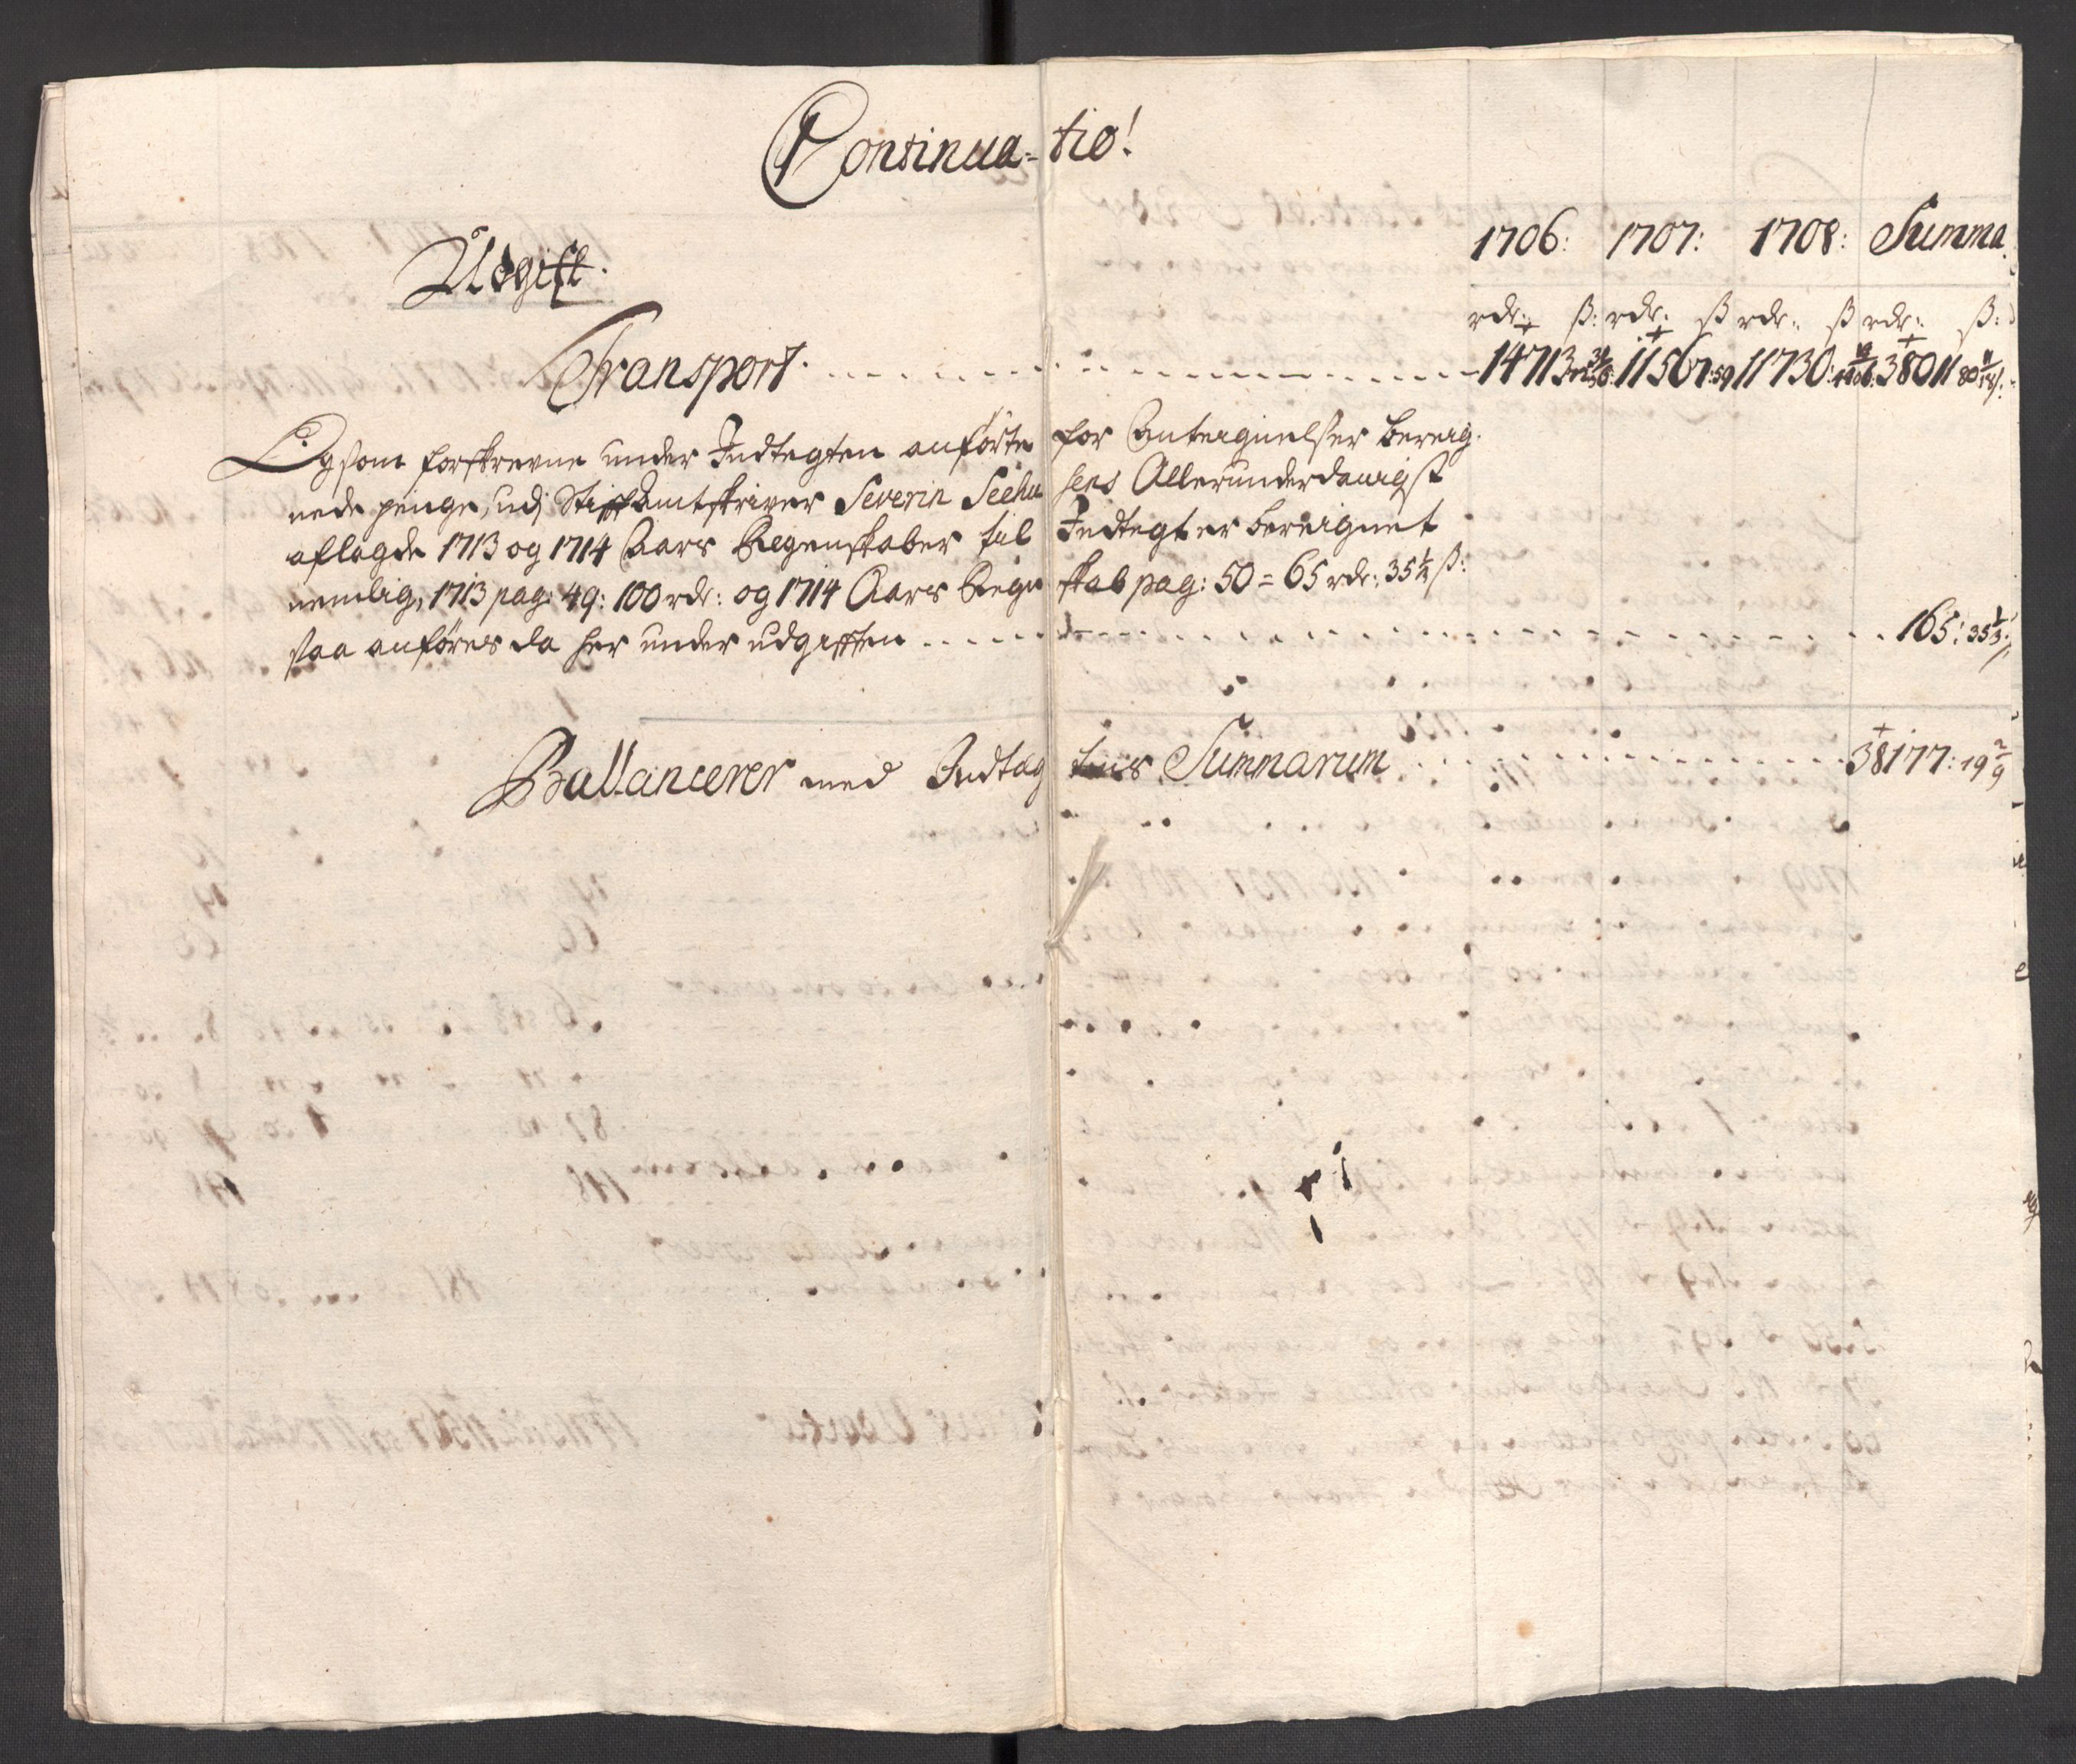 Continua-tio!
Udgift.
1706: 1707: 1708: Summa.
rdr: ß: rdr: ß rdr: ß rdr: ß:
Transport 14713 11567:59 11730: 38011
Og som forskrevne under Indtegten anførte for Antegnelser bereig-
nede penge, udj Stifftamtskriver Severin Seehusens Allerunderdanigst
aflagde 1713 og 1714 Aars Regenskaber til Indtegt er bereignet
nemblig, 1713 pag: 49: 100 rdr: og 1714 Aars Regnskab pag: 50 = 65 rdr: 35 1/3 ß:
saa anføres da her under udgifften 165: 35 1/3
Ballancerer med Indtagtens Summarum 38177: 19 2/9